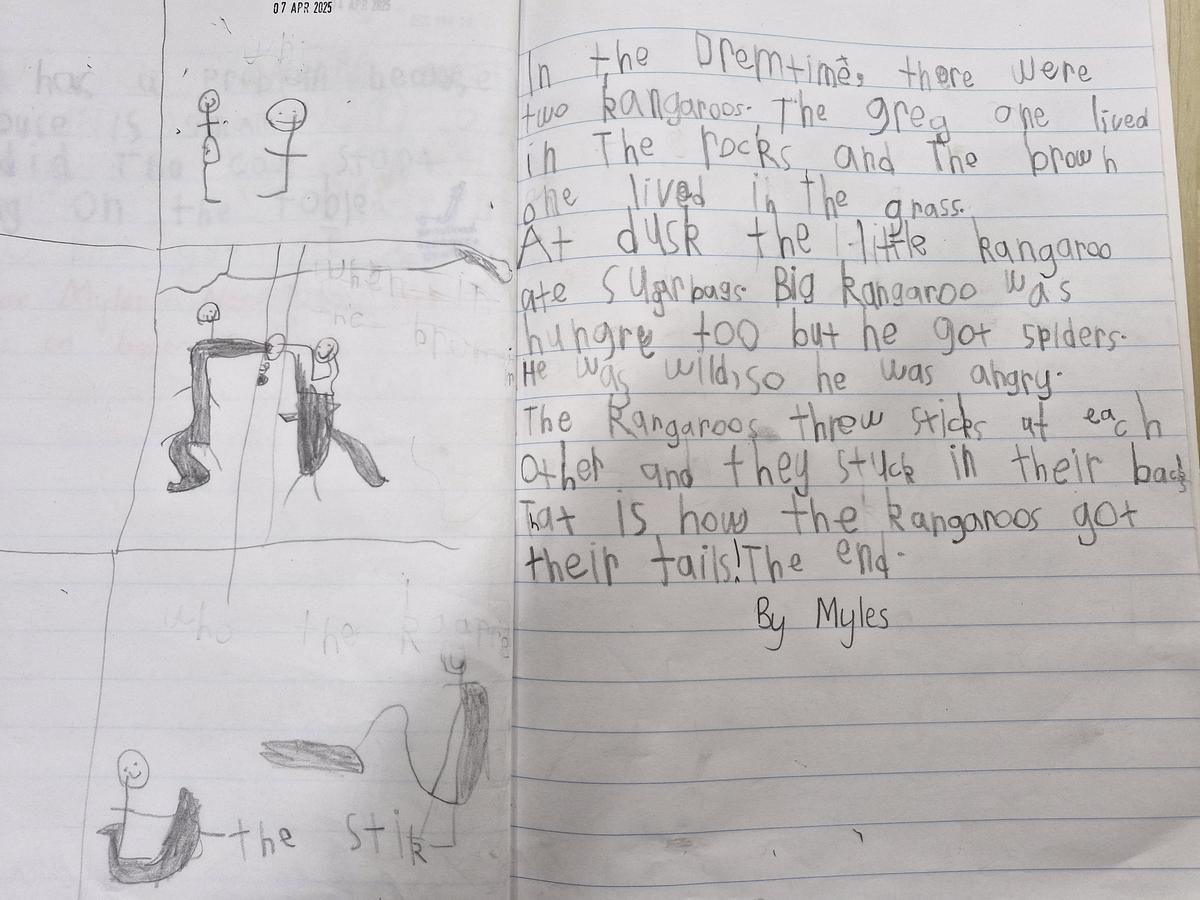 07 APR 2025
the stik
In the Dremtime, there were
two kangaroos. The greg one lived
in The rocks and The brown
one lived in the grass.
At dusk the little kangaroo
ate sugarbags. Big kangaroo was
hungre too but he got spiders.
He was wild, so he was angry.
The kangaroos threw sticks at each
other and they stuck in their backs
That is how the kangaroos got
their tails! The end.
By Myles